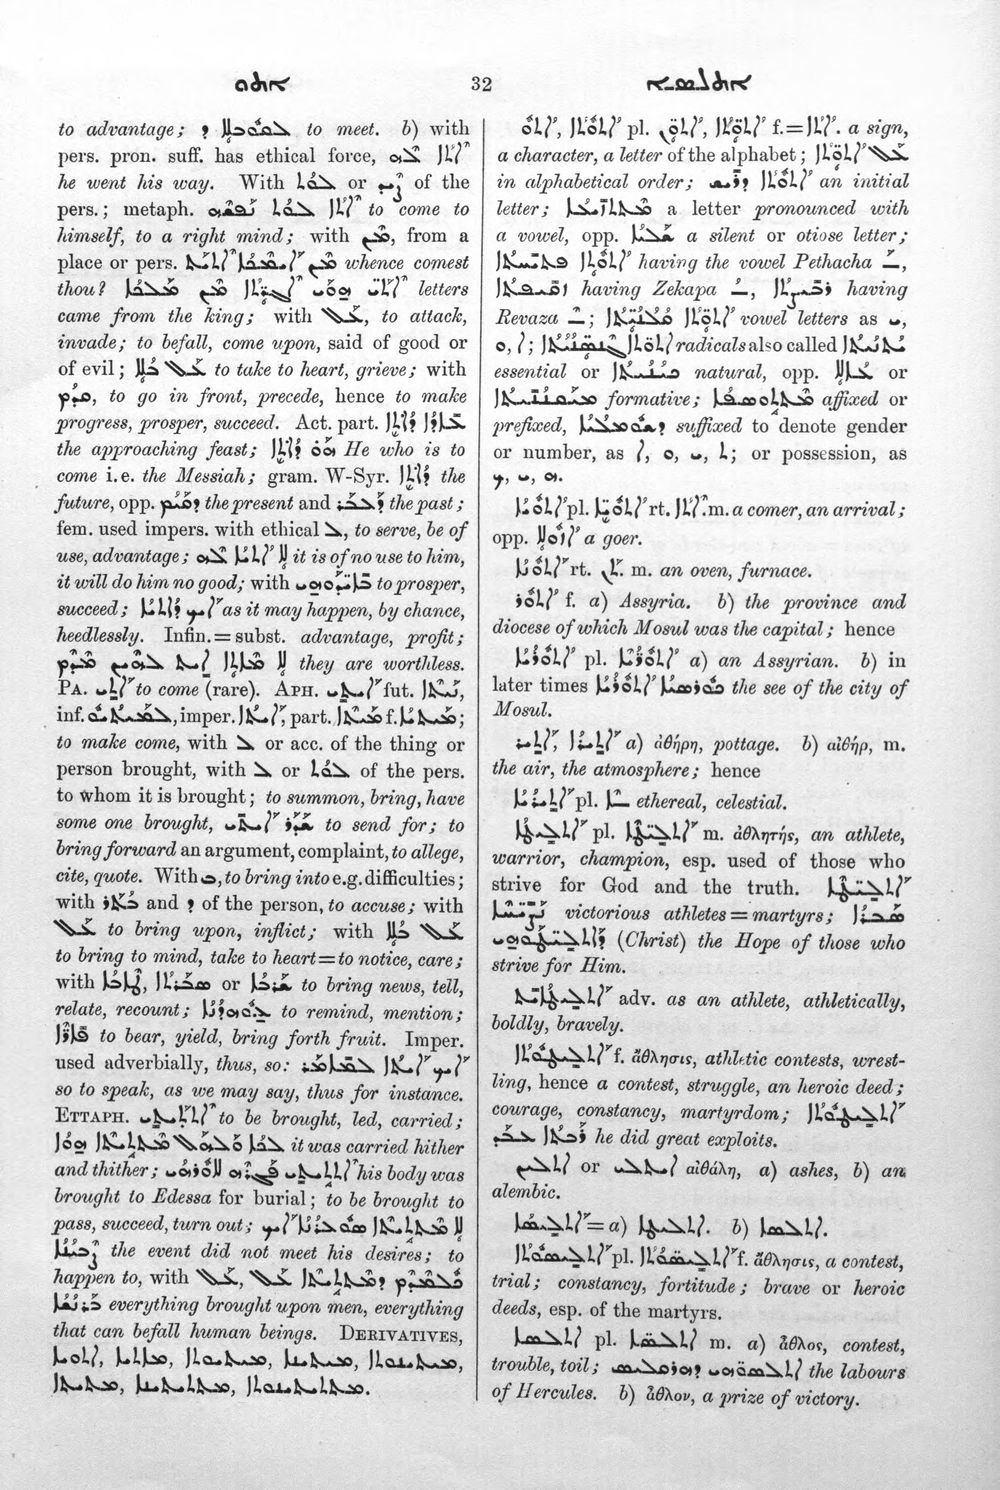 ܐܬܘ 32 ܐܬܠܣܝܐ
to advantage; ܠܩܘܒܠܐ ܕ to meet. b) with
pers. pron. suff. has ethical force, ܐܬܐ ܠܗ
he went his way. With ܠܘܬ or ܨܝܕ of the
pers.; metaph. ܐܬܐ ܠܘܬ ܢܦܫܗ to come to
himself, to a right mind; with ܡܢ, from a
place or pers. ܡܢ ܐܝܡܟܐ ܐܬܝܬ whence comest
thou? ܐܬܝ ܗܘܝ ܐܓܪܬܐ ܡܢ ܡܠܟܐ letters
came from the king; with ܥܠ, to attack,
invade; to befall, come upon, said of good or
of evil; ܥܠ ܒܠܐ to take to heart, grieve; with
ܩܕܡ, to go in front, precede, hence to make
progress, prosper, succeed. Act. part. ܥܕܥܕܐ ܕܐܬܐ
the approaching feast; ܗܘ ܕܐܬܐ He who is to
come i.e. the Messiah; gram. W-Syr. ܕܐܬܐ the
future, opp. ܕܩܐܡ the present and ܕܥܒܪ the past;
fem. used impers. with ethical ܠ, to serve, be of
use, advantage; ܠܐ ܐܬܝܐ ܠܗ it is of no use to him,
it will do him no good; with to prosper,
succeed; ܐܝܟ ܕܐܬܝܐ as it may happen, by chance,
heedlessly. Infin. = subst. advantage, profit;
ܠܐ ܡܐܬܐ ܐܝܬ ܠܗܘܢ ܡܕܡ they are worthless.
PA. ܐܬܝ to come (rare). APH. ܐܝܬܝ fut. ܢܝܬܐ,
inf. ܠܡܝܬܝܘ, imper. ܐܝܬܐ, part. ܡܝܬܐ f. ܡܝܬܝܐ;
to make come, with ܠ or acc. of the thing or
person brought, with ܠ or ܠܘܬ of the pers.
to whom it is brought; to summon, bring, have
some one brought, ܫܕܪ ܐܝܬܝ to send for; to
bring forward an argument, complaint, to allege,
cite, quote. With ܒ, to bring into e.g. difficulties;
with ܒܬܪ and ܕ of the person, to accuse; with
ܥܠ to bring upon, inflict; with ܥܠ ܒܠܐ
to bring to mind, take to heart = to notice, care;
with ܛܐܒܐ, ܣܒܪܬܐ or ܫܪܒܐ to bring news, tell,
relate, recount; ܠܥܘܗܕܢܐ to remind, mention;
ܦܐܪܐ to bear, yield, bring forth fruit. Imper.
used adverbially, thus, so: ܐܝܟ ܐܝܬܐ ܠܡܐܡܪ
so to speak, as we may say, thus for instance.
ETTAPH. ܐܬܬܝܬܝ to be brought, led, carried;
ܠܟܐ ܘܠܗܠ ܡܬܬܝܬܐ ܗܘܐ it was carried hither
and thither; ܐܬܬܝܬܝ ܦܓܪܗ ܠܐܘܪܗܝ his body was
brought to Edessa for burial; to be brought to
pass, succeed, turn out; ܠܐ ܡܬܬܝܬܐ ܣܘܥܪܢܐ ܐܝܟ
ܨܒܝܢܐ the event did not meet his desires; to
happen to, with ܥܠ, ܟܠܡܕܡ ܕܡܬܬܝܬܐ ܥܠ
ܒܪܢܫܐ everything brought upon men, everything
that can befall human beings. DERIVATIVES,
ܐܬܘܝܐ, ܡܐܬܝܐ, ܡܝܬܘܝܬܐ, ܡܝܬܝܢܐ, ܡܝܬܝܢܘܬܐ,
ܡܝܬܝܬܐ, ܡܬܬܝܬܝܢܐ, ܡܬܬܝܬܝܢܘܬܐ.
ܐܬܘ, ܐܬܘܬܐ pl. ܐܬܘܢ, ܐܬܘܬܐ f. = ܐܬܐ. a sign,
a character, a letter of the alphabet; ܥܠ ܐܬܘܬܐ
in alphabetical order; ܐܬܘܬܐ ܕܪܝܫ an initial
letter; ܡܬܬܙܝܥܐ a letter pronounced with
a vowel, opp. ܫܠܝܐ a silent or otiose letter;
ܐܬܘܬܐ ܦܬܝܚܬܐ having the vowel Pethacha,
ܙܩܝܦܬܐ having Zekapa; ܪܒܝܨܬܐ having
Revaza; ܐܬܘܬܐ vowel letters as ܝ,
ܘ, ܐ; ܐܬܘܬܐ radicals also called ܝܬܢܝܬܐ
essential or ܟܝܢܝܬܐ natural, opp. ܥܠܬܐ or
formative; ܡܬܬܘܣܦܐ affixed or
prefixed, suffixed to denote gender
or number, as ܐ, ܘ, ܝ, ܬ; or possession, as
ܟ, ܝ, ܗ.
ܐܬܘܝܐ pl. ܐܬܘܝܐ rt. ܐܬܐ. m. a comer, an arrival;
opp. ܐܙܘܠܐ a goer.
ܐܬܘܢܐ rt. ܬܢ. m. an oven, furnace.
ܐܬܘܪ f. a) Assyria. b) the province and
diocese of which Mosul was the capital; hence
ܐܬܘܪܝܐ pl. ܐܬܘܪܝܐ a) an Assyrian. b) in
later times ܟܘܪܣܝܐ ܐܬܘܪܝܐ the see of the city of
Mosul.
ܐܬܝܪ, ܐܬܝܪܐ a) ἀθήρη, pottage. b) αἰθήρ, m.
the air, the atmosphere; hence
ܐܬܝܪܝܐ pl. ܝܐ ethereal, celestial.
ܐܬܠܝܛܐ pl. ܐܬܠܝܛܐ m. ἀθλητής, an athlete,
warrior, champion, esp. used of those who
strive for God and the truth. ܐܬܠܝܛܐ
ܢܨܝܚܐ victorious athletes = martyrs; ܣܒܪܐ
ܕܐܬܠܝܛܘܗܝ (Christ) the Hope of those who
strive for Him.
ܐܬܠܝܛܐܝܬ adv. as an athlete, athletically,
boldly, bravely.
ܐܬܠܝܛܘܬܐ f. ἄθλησις, athletic contests, wrest-
ling, hence a contest, struggle, an heroic deed;
courage, constancy, martyrdom; ܐܬܠܝܛܘܬܐ
ܪܒܬܐ ܥܒܕ he did great exploits.
or αἰθάλη, a) ashes, b) an
alembic.
ܐܬܠܝܣܐ = a) ܐܬܠܝܛܐ. b) ܐܬܠܣܐ.
ܐܬܠܝܣܘܬܐ pl. ܐܬܠܝܣܘܬܐ f. ἄθλησις, a contest,
trial; constancy, fortitude; brave or heroic
deeds, esp. of the martyrs.
ܐܬܠܣܐ pl. ܐܬܠܣܐ m. a) ἆθλος, contest,
trouble, toil; ܐܬܠܣܘܗܝ ܕܗܘܪܩܠܝܣ the labours
of Hercules. b) ἆθλον, a prize of victory.